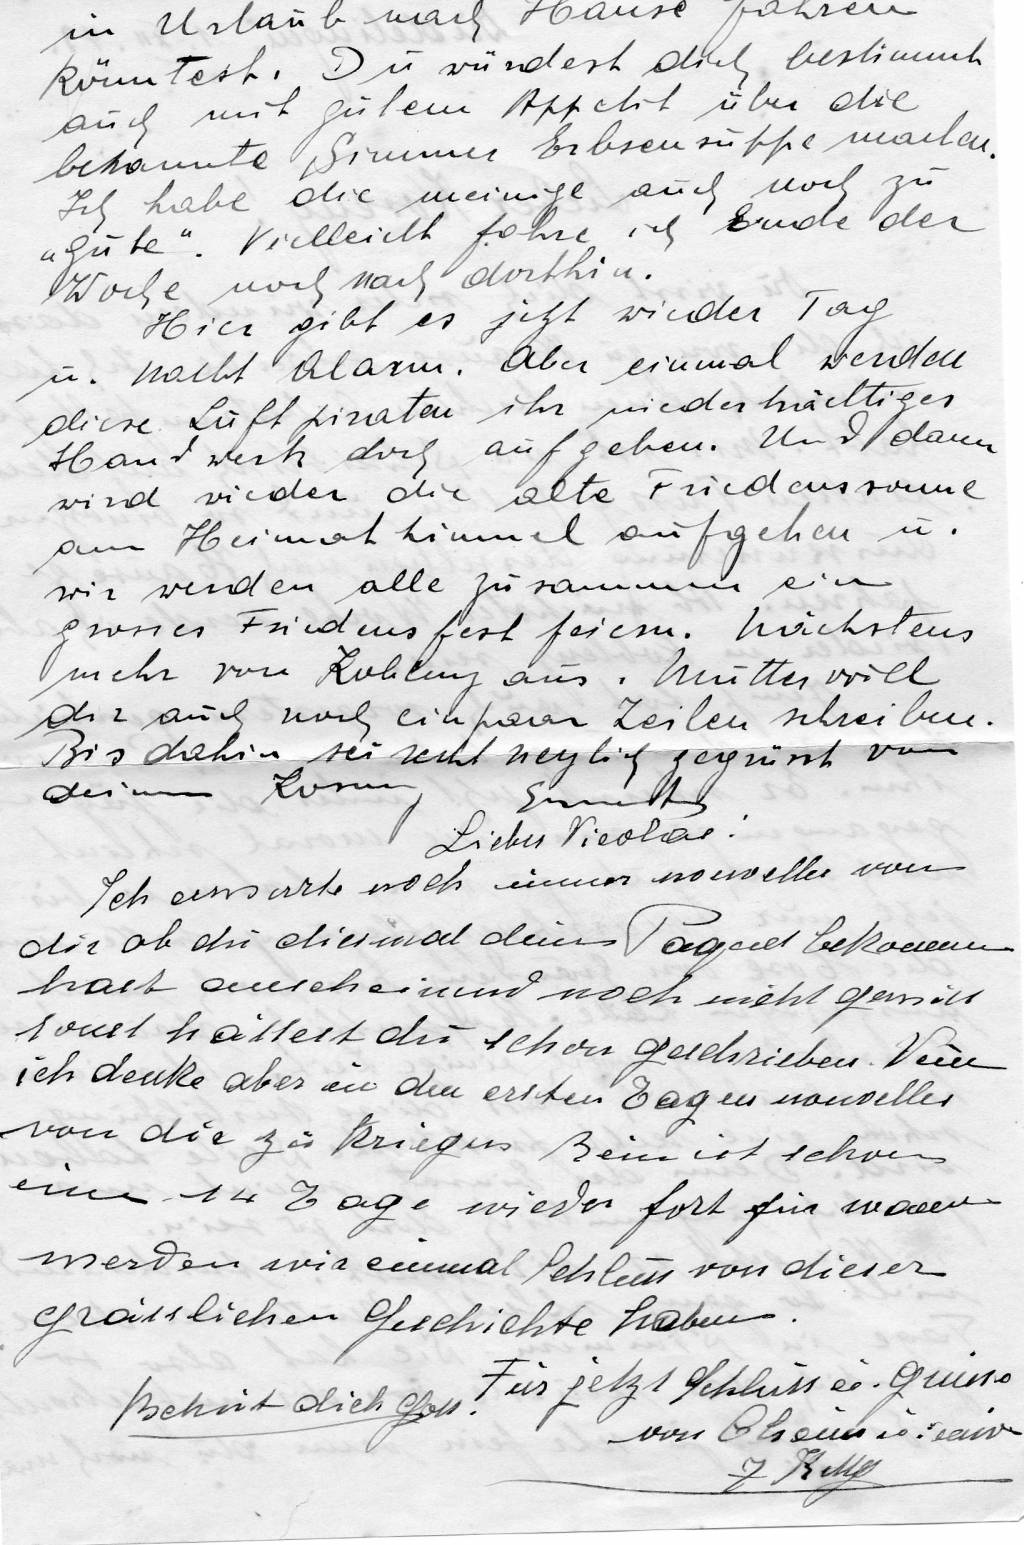 in Urlaub nach Hause fahren
könntest. Du würdest dich bestimmt
auch mit gutem Appetit über die
bekannte Simmer Erbsensuppe machen.
Ich habe die meinige auch noch zu
„gute“. Vielleicht fahre ich Ende der
Woche noch nach dorthin.
Hier gibt es jetzt wieder Tag
u. Nacht Alarm. Aber einmal werden
diese Luftpiraten ihr niederträchtiges
Handwerk doch aufgeben. Und dann
wird wieder die alte Friedenssonne
am Heimathimmel aufgehen u.
wir werden alle zusammen ein
grosses Friedensfest feiern. Nächstens
mehr von Koblenz aus. Mutter will
dir auch noch ein paar Zeilen schreiben.
Bis dahin sei recht herzlich gegrüsst von
deinem
Lieber Nicolas!
Ich erwarte noch immer nouvelles von
dir ob du diesmal deine Paquet bekommen
hast anscheinend noch nicht gewiss
sonst hättest du schon geschrieben.
ich denke aber in den ersten Tagen nouvelles
von die zu kriegen ist schon
eine 14 Tage wieder fort für wann
werden wir einmal Schluss von dieser
grässlichen Geschichte haben.
Für jetzt Schluss u. Grüsse
Behüt dich Gott.
von